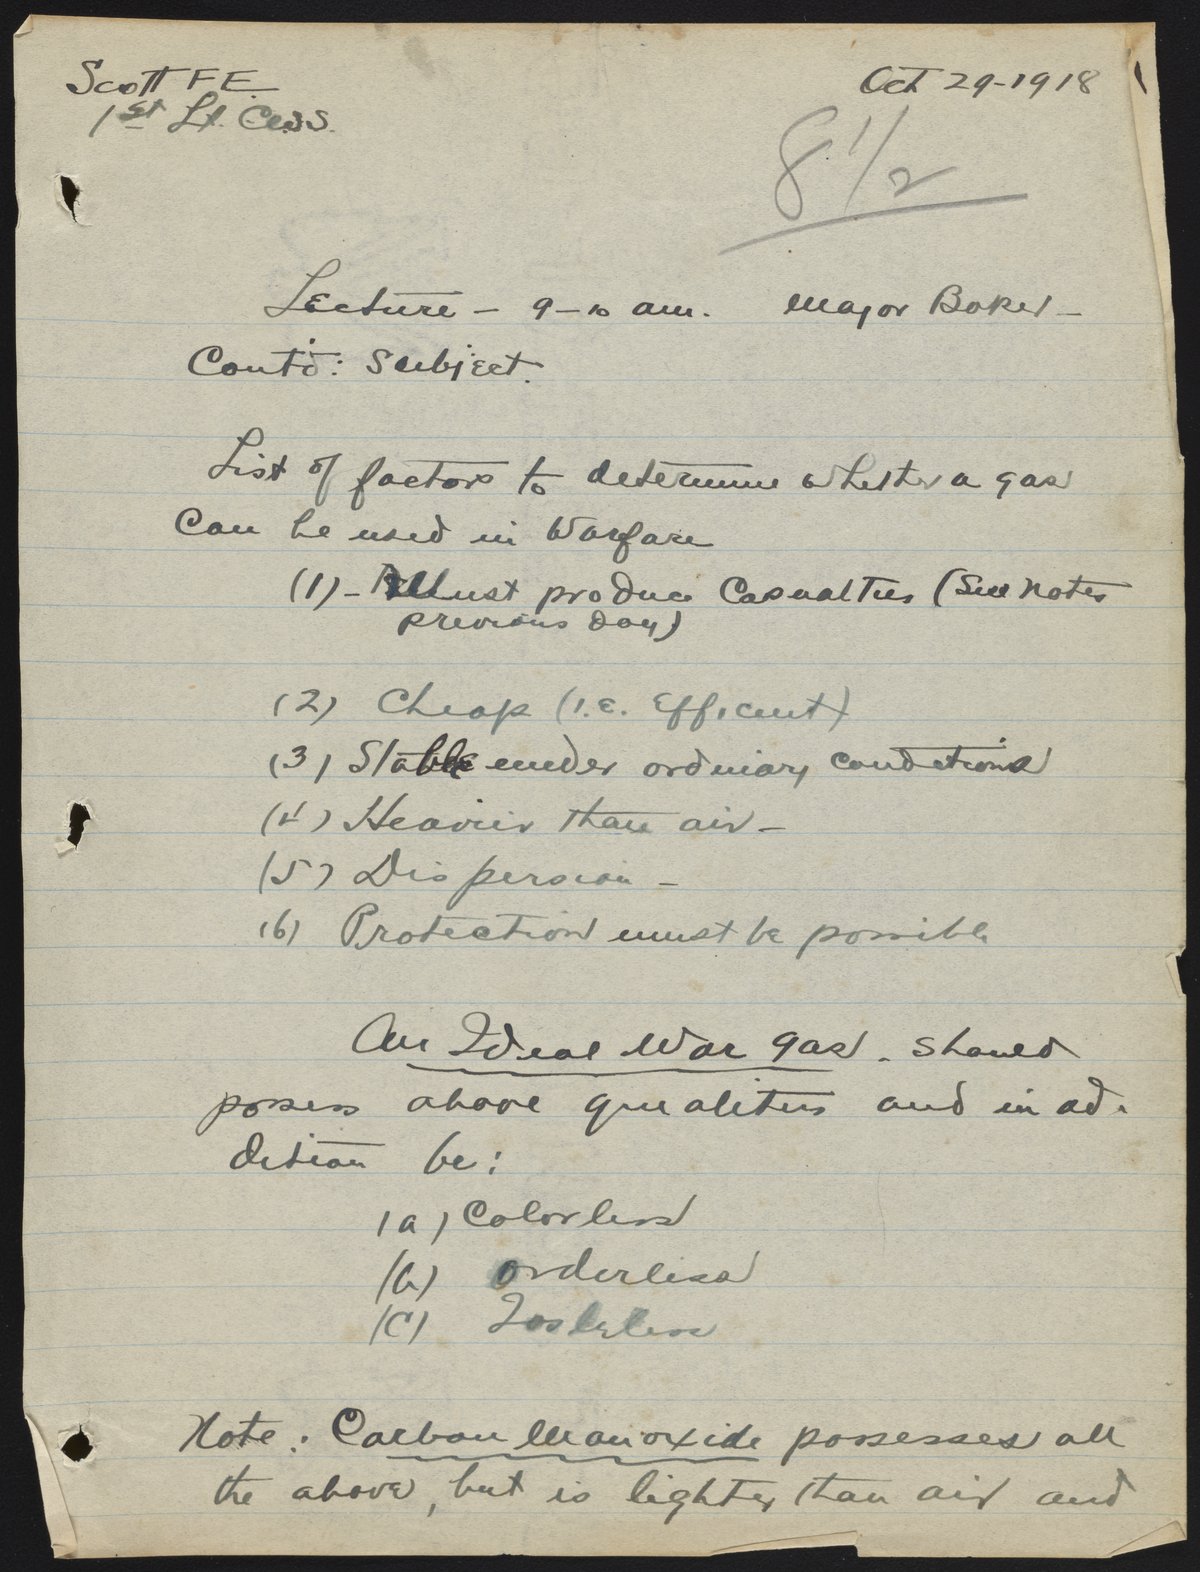 Scott F.E.
1st Lt. C.W.S.
Oct 29-1918
8 1/2
Lecture - 9-10 am. Major Baker -
Cont'd: Subject.
List of factors to determine whether a gas
can be used in Warfare
(1) - Must produce Casualties (See notes
previous day)
(2) Cheap (i.e. Efficient)
(3) Stable under ordinary conditions
(4) Heavier than air -
(5) Dispersion -
(6) Protection must be possible
An Ideal War gas. should
posess above qualities and in ad-
dition be:
(a) Colorless
(b) orderless
(c) Tasteless
Note: Carbon Monoxide possesses all
the above, but is lighter than air and